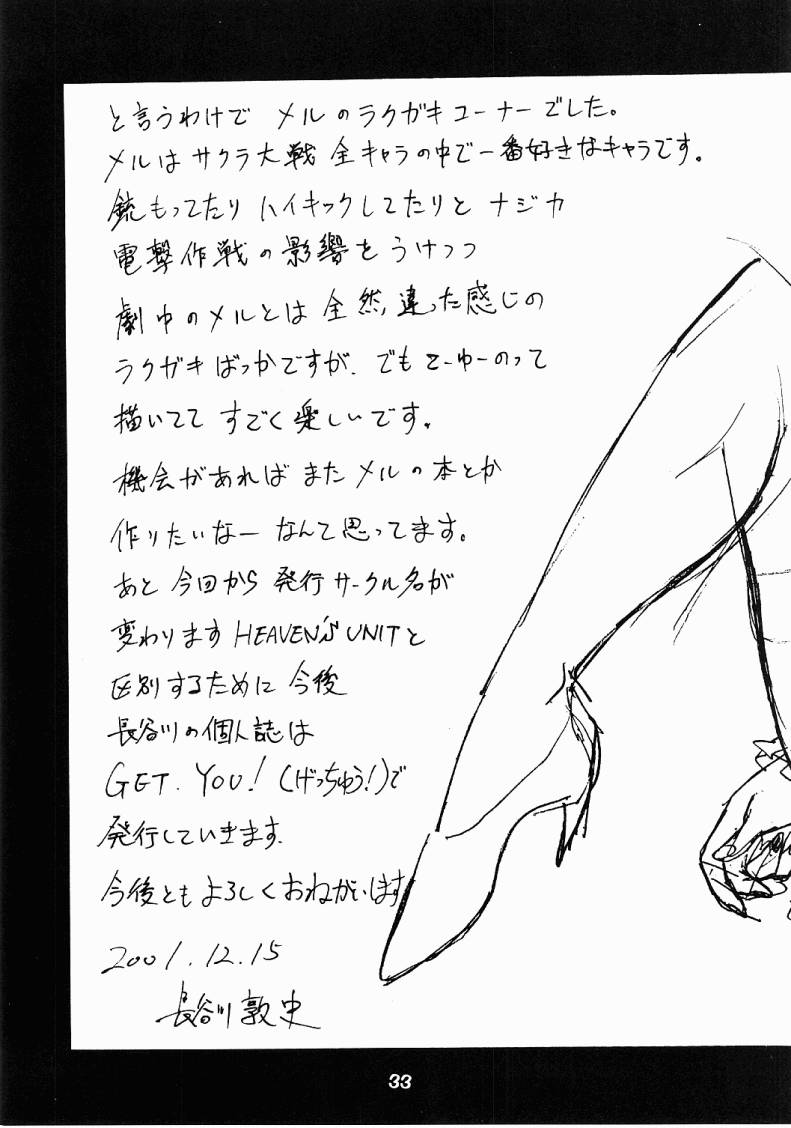 と言うわけで メルのラクガキコーナーでした。
メルは サクラ大戦 全キャラの中で一番好きなキャラです。
銃もってたり ハイキックしてたりと ナジカ
電撃作戦の影響をうけつつ
劇中のメルとは 全然違った感じの
ラクガキばっかですが、でもこーゆーのって
描いてて すごく楽しいです。
機会があれば またメルの本とか
作りたいなー なんて思ってます。
あと 今回から 発行サークル名が
変わります HEAVEN'S UNITと
区別するために 今後
長谷川の個人誌は
GET YOU! (げっちゅう!)で
発行していきます。
今後ともよろしくおねがいします
2001.12.15
長谷川敦史
33